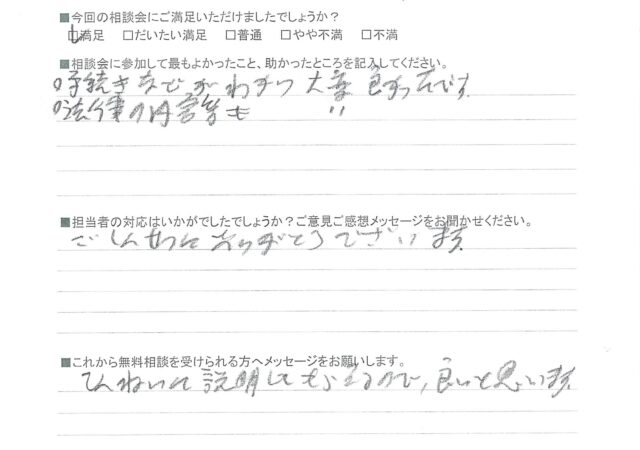 ■今回の相談会にご満足いただけましたでしょうか?
☑満足 □だいたい満足 □普通 □やや不満 □不満
■相談会に参加して最もよかったこと、助かったところを記入してください。
手続きまでがわかり 大変 良かったです。
法律の内容等も 〃
■担当者の対応はいかがでしたでしょうか?ご意見ご感想メッセージをお聞かせください。
ごしんせつにありがとうございます。
■これから無料相談を受けられる方へメッセージをお願いします。
ていねいに説明してもらえるので、良いと思います。